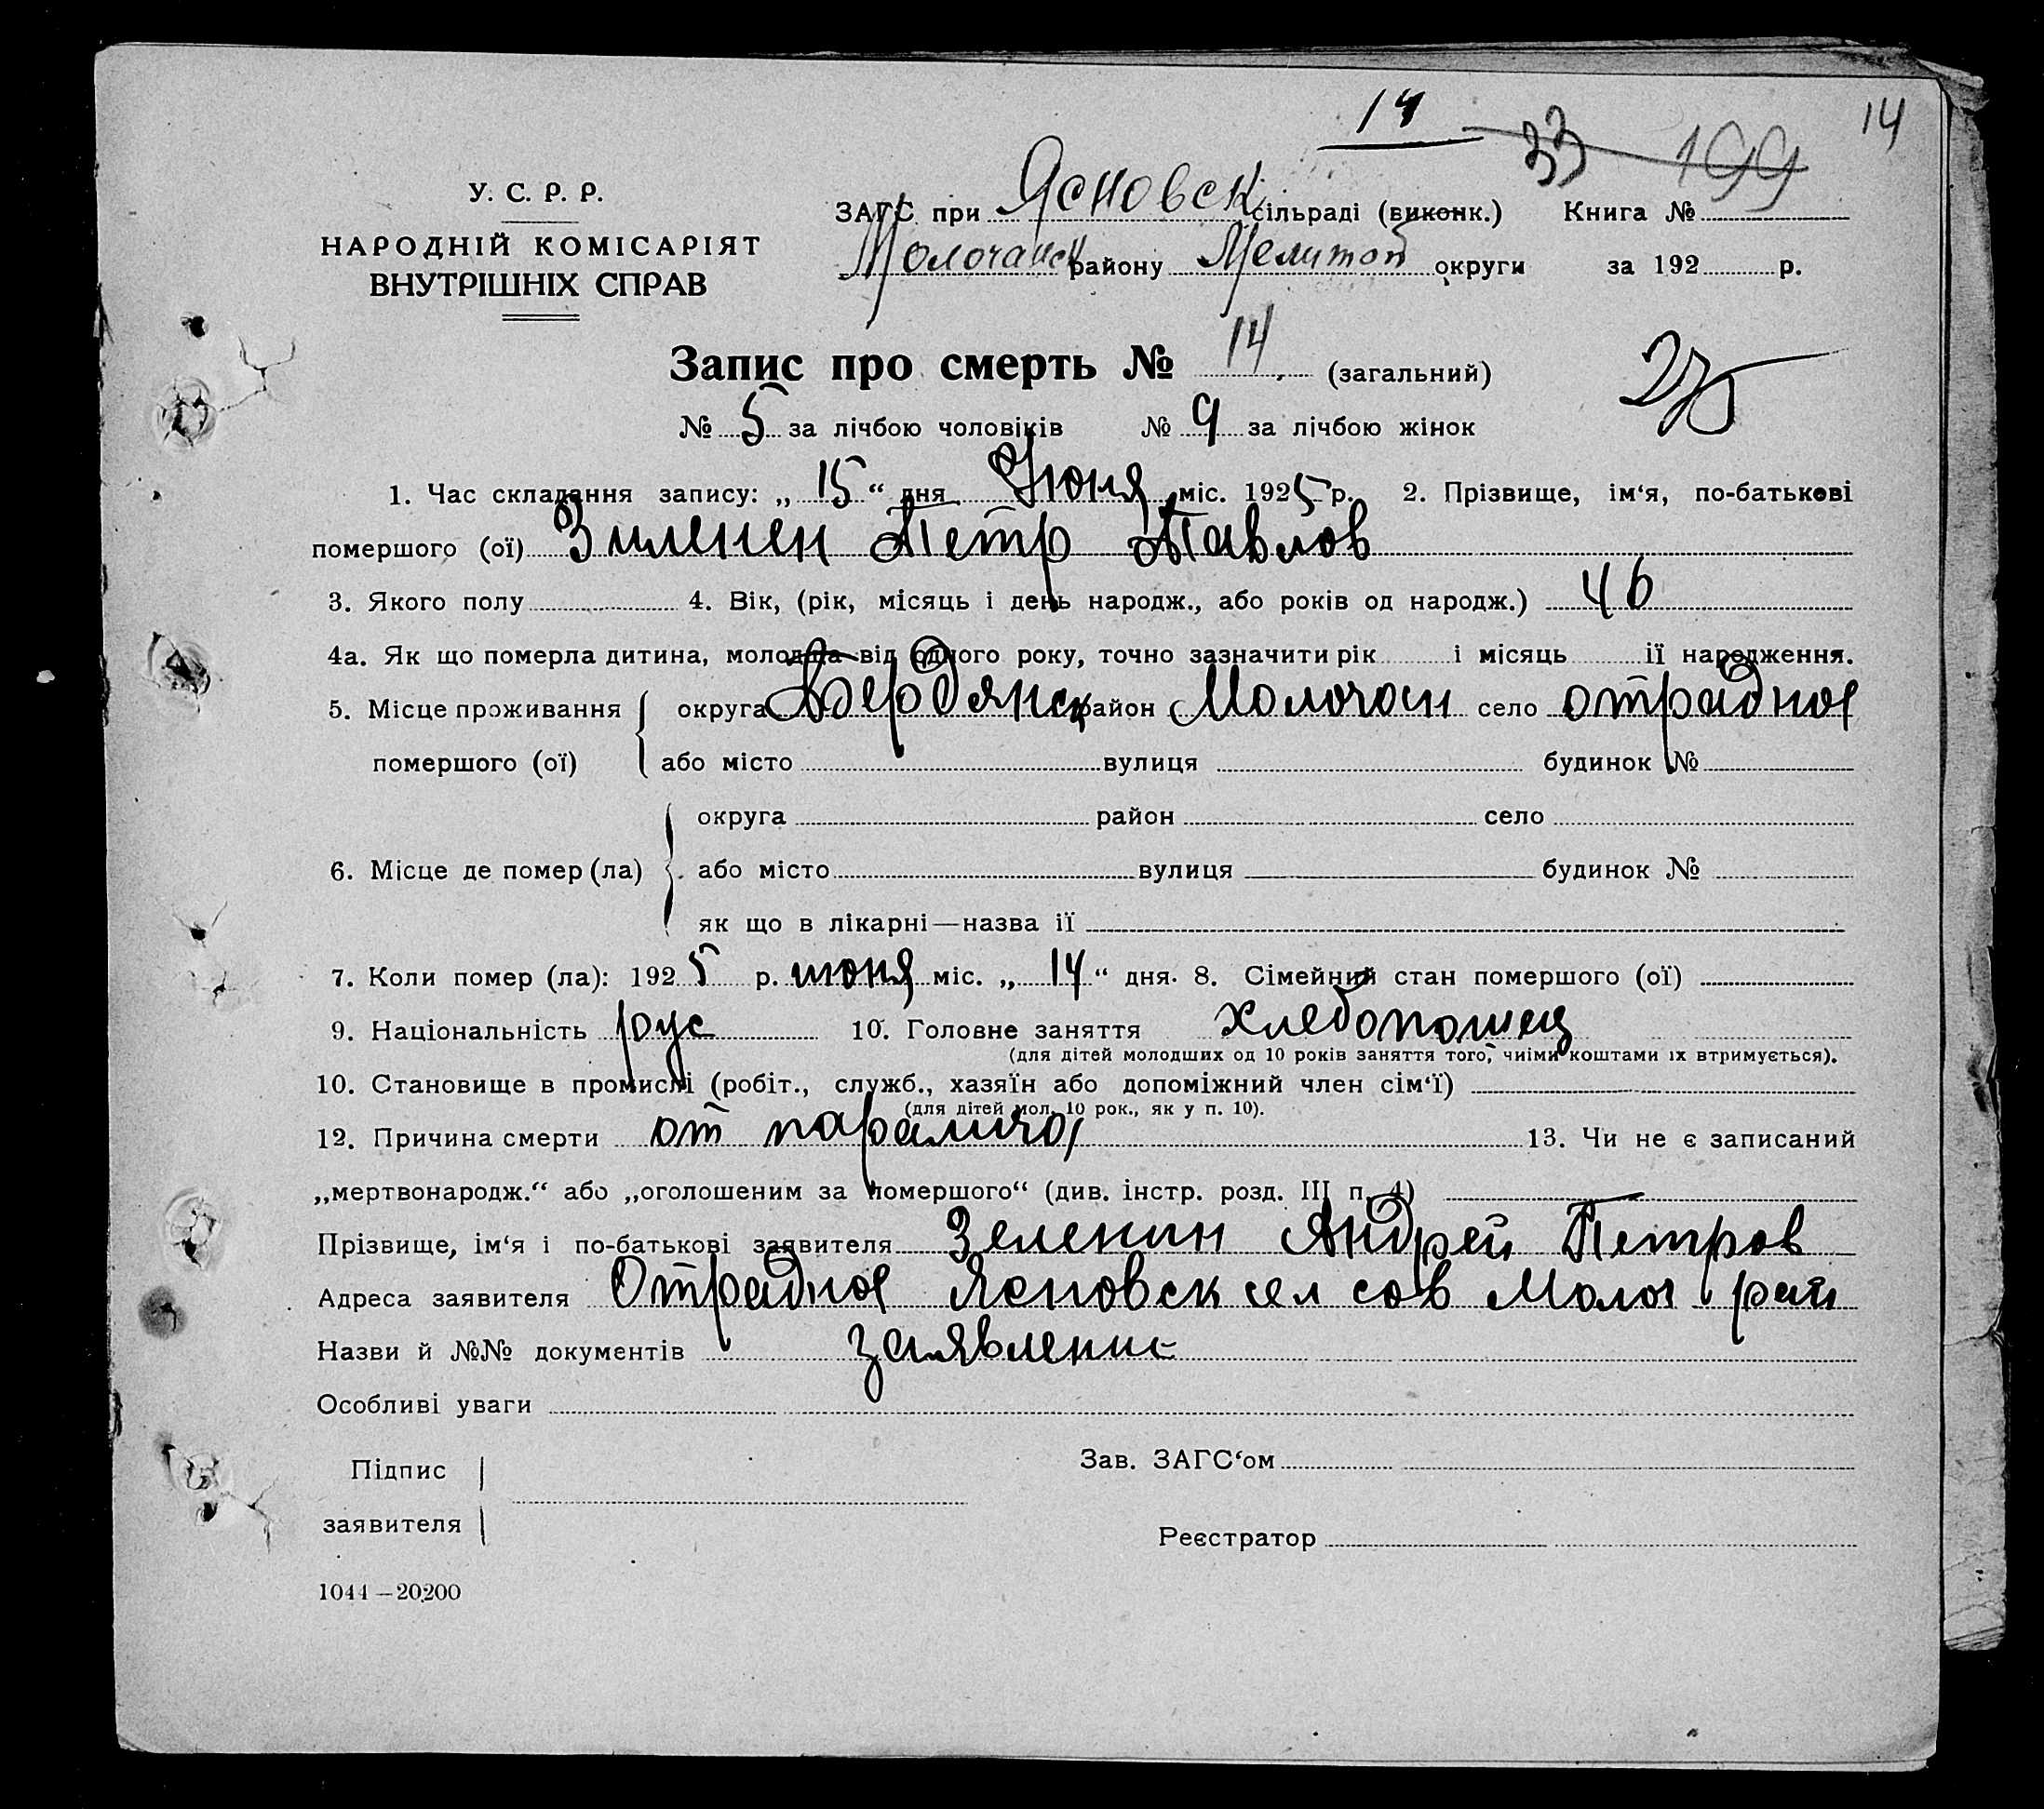 14 33 199 14
У. С. Р. Р.
НАРОДНІЙ КОМІСАРІЯТ
ВНУТРІШНІХ СПРАВ
ЗАГС при Ясновск сільраді (виконк.) Книга №
Молочанск району Мелитоп округи за 192 р.
Запис про смерть № 14 (загальний)
№ 5 за лічбою чоловіків № 9 за лічбою жінок
1. Час складання запису: „ 15 “ дня Июня міс. 1925 р. 2. Прізвище, ім‘я, по-батькові
помершого (ої) Зиленен Петр Павлов
3. Якого полу 4. Вік, (рік, місяць і день народж., або років од народж.) 46
4а. Як що померла дитина, молодша від одного року, точно зазначити рік і місяць її народження.
5. Місце проживання помершого (ої)
округа Бердянск район Молочан село отрадное
або місто вулиця будинок №
6. Місце де помер (ла)
округа район село
або місто вулиця будинок №
як що в лікарні—назва її
7. Коли помер (ла): 1925 р. июня міс. „ 14 “ дня. 8. Сімейний стан помершого (ої)
9. Національність рус 10. Головне заняття хлебопошец
(для дітей молодших од 10 років заняття того, чиіми коштами їх втримується).
10. Становище в промислі (робіт., служб., хазяїн або допоміжний член сім‘ї)
(для дітей мол. 10 рок., як у п. 10).
12. Причина смерти от паралича 13. Чи не є записаний
„мертвонародж.“ або „оголошеним за помершого“ (див. інстр. розд. III п. 4)
Прізвище, ім‘я і по-батькові заявителя Зеленин Андрей Петров
Адреса заявителя Отрадное Ясновск сел сов Молоч рай
Назви й №№ документів заявление
Особливі уваги
Підпис заявителя
Зав. ЗАГС‘ом
Реєстратор
1044—20200